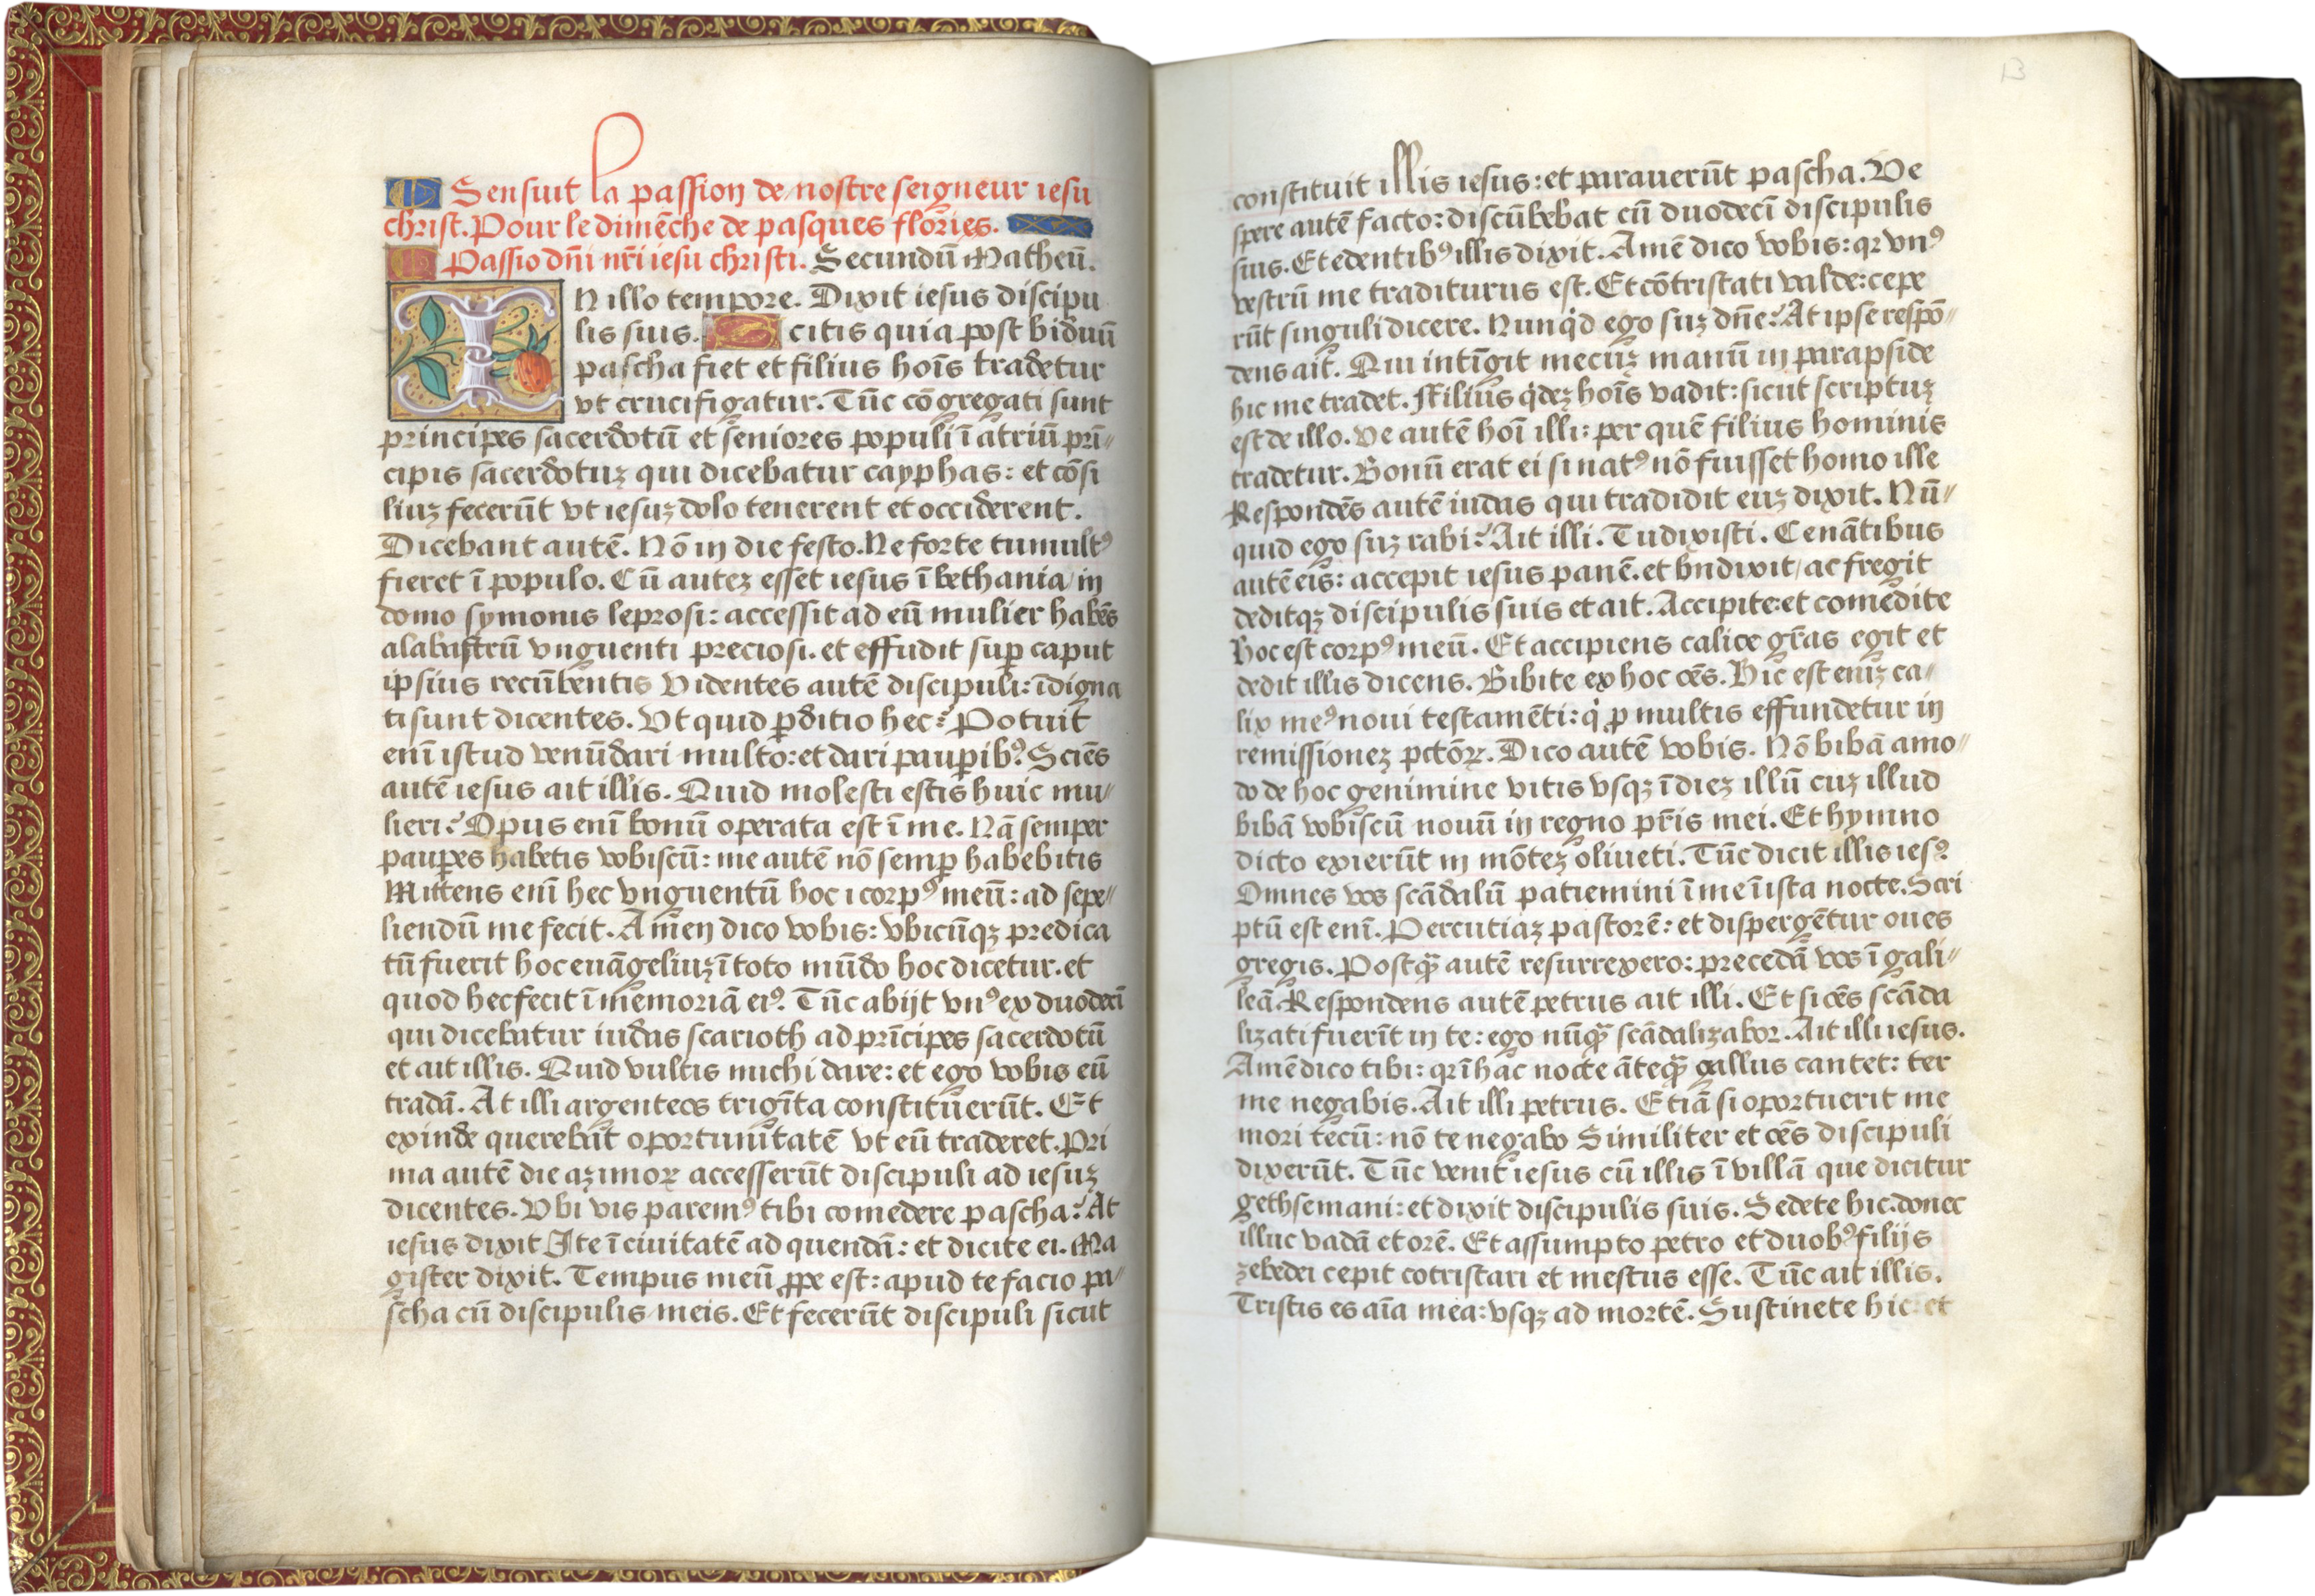 Sensuit la passion de nostre seigneur iesu
christ. Pour le dimēche de pasques flories.
Passio dn̄i nr̄i iesu christi. Secundū Matheū.
IN illo tempore. Dixit iesus discipu
lis suis. Scitis quia post biduū
pascha fiet et filius hoīs tradetur
vt crucifigatur. Tūc cōgregati sunt
principes sacerdotū et seniores populi ī atriū prī⸗
cipis sacerdotuꝫ qui dicebatur cayphas: et cōsi
liuꝫ fecerūt vt iesuꝫ dolo tenerent et occiderent.
Dicebant autē. Nō in die festo. Ne forte tumultꝰ
fieret ī populo. Cū auteꝫ esset iesus ī bethania/ in
domo symonis leprosi: accessit ad eū mulier habēs
alabastrū vnguenti preciosi. et effudit suꝑ caput
ipsius recūbentis Videntes autē discipuli: īdigna
ti sunt dicentes. Vt quid ꝑditio hec? Potuit
enī istud venūdari multo: et dari pauꝑibꝰ? Sciēs
autē iesus ait illis. Quid molesti estis huic mu⸗
lieri? Opus enī bonū operata est ī me. Nā semper
pauꝑes habetis vobiscū: me autē nō semꝑ habebitis
Mittens enī hec vnguentū hoc ī corpꝰ meū: ad sepe⸗
liendū me fecit. Amen dico vobis: vbicūqꝫ predica
tū fuerit hoc euāgeliuꝫ ī toto mūdo hoc dicetur. et
quod hec fecit ī memoriā eiꝰ. Tūc abijt vnꝰ ex duodecī
qui dicebatur iudas scarioth ad prīcipes sacerdotū
et ait illis. Quid vultis michi dare: et ego vobis eū
tradā. At illi argenteos trigīta constituerūt. Et
exinde querebāt oportunitatē vt eū traderet. Pri
ma autē die aꝫimoꝝ accesserūt discipuli ad iesuꝫ
dicentes. Vbi vis paremꝰ tibi comedere pascha? At
iesus dixit Ite ī ciuitatē ad quendā: et dicite ei. Ma
gister dixit. Tempus meū ꝓpe est: apud te facio pa⸗
scha cū discipulis meis. Et fecerūt discipuli sicut
13
constituit illis iesus: et parauerūt pascha. Ve
spere autē facto: discūbebat cū duodecī discipulis
suis. Et edentibꝰ illis dixit. Amē dico vobis: qꝛ vnꝰ
vestrū me traditurus est. Et cōtristati valde: cepe
rūt singuli dicere. Nunqͥd ego suꝫ dn̄e? At ipse respō⸗
dens ait. Qui intīgit mecuꝫ manū in parapside
hic me tradet. Filius qͥdeꝫ hoīs vadit: sicut scriptuꝫ
est de illo. ve autē hoī illi: per quē filius hominis
tradetur. Bonū erat ei si natꝰ nō fuisset homo ille
Respondēs autē iudas qui tradidit euꝫ dixit. Nū⸗
quid ego suꝫ rabi? Ait illi. Tu dixisti. Cenātibus
autē eis: accepit iesus panē. et bn̄dixit/ ac fregit
deditqꝫ discipulis suis et ait. Accipite: et comedite
Hoc est corpꝰ meū. Et accipiens calice gr̄as egit et
dedit illis dicens. Bibite ex hoc oēs. Hic est eniꝫ ca⸗
lix meꝰ noui testamēti: qͥ ꝓ multis effundetur in
remissioneꝫ pctōꝝ. Dico autē vobis. Nō bibā amo⸗
do de hoc genimine vitis vsqꝫ ī dieꝫ illū cuꝫ illud
bibā vobiscū nouū in regno pr̄is mei. Et hymno
dicto exierūt in mōteꝫ oliueti. Tūc dicit illis iesꝰ.
Omnes vos scādalū patiemini ī me ī ista nocte. Scri
ptū est enī. Percutiaꝫ pastorē: et dispergētur oues
gregis. Postqꝙ̄ autē resurrexero: precedā vos ī gali⸗
leā. Respondens autē petrus ait illi. Et si oēs scāda
lizati fuerīt in te: ego nūqꝙ̄ scādalizabor. Ait illi iesus.
Amē dico tibi: qꝛ ī hac nocte āteqꝙ̄ gallus cantet: ter
me negabis. Ait illi petrus. Etiā si oportuerit me
mori tecū: nō te negabo Similiter et oēs discipuli
dixerūt. Tūc venit iesus cū illis ī villā que dicitur
gethsemani: et dixit discipulis suis. Sedete hic. donec
illuc vadā et orē. Et assumpto petro et duobꝰ filijs
zebedei cepit cotristari et mestus esse. Tūc ait illis.
Tristis es aīa mea: vsqꝫ ad mortē. Sustinete hic: et